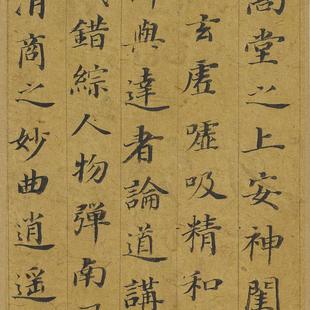 高堂之上安神閨
玄虛噓吸精和
與達者論道講
錯綜人物彈南
清商之妙曲逍遥